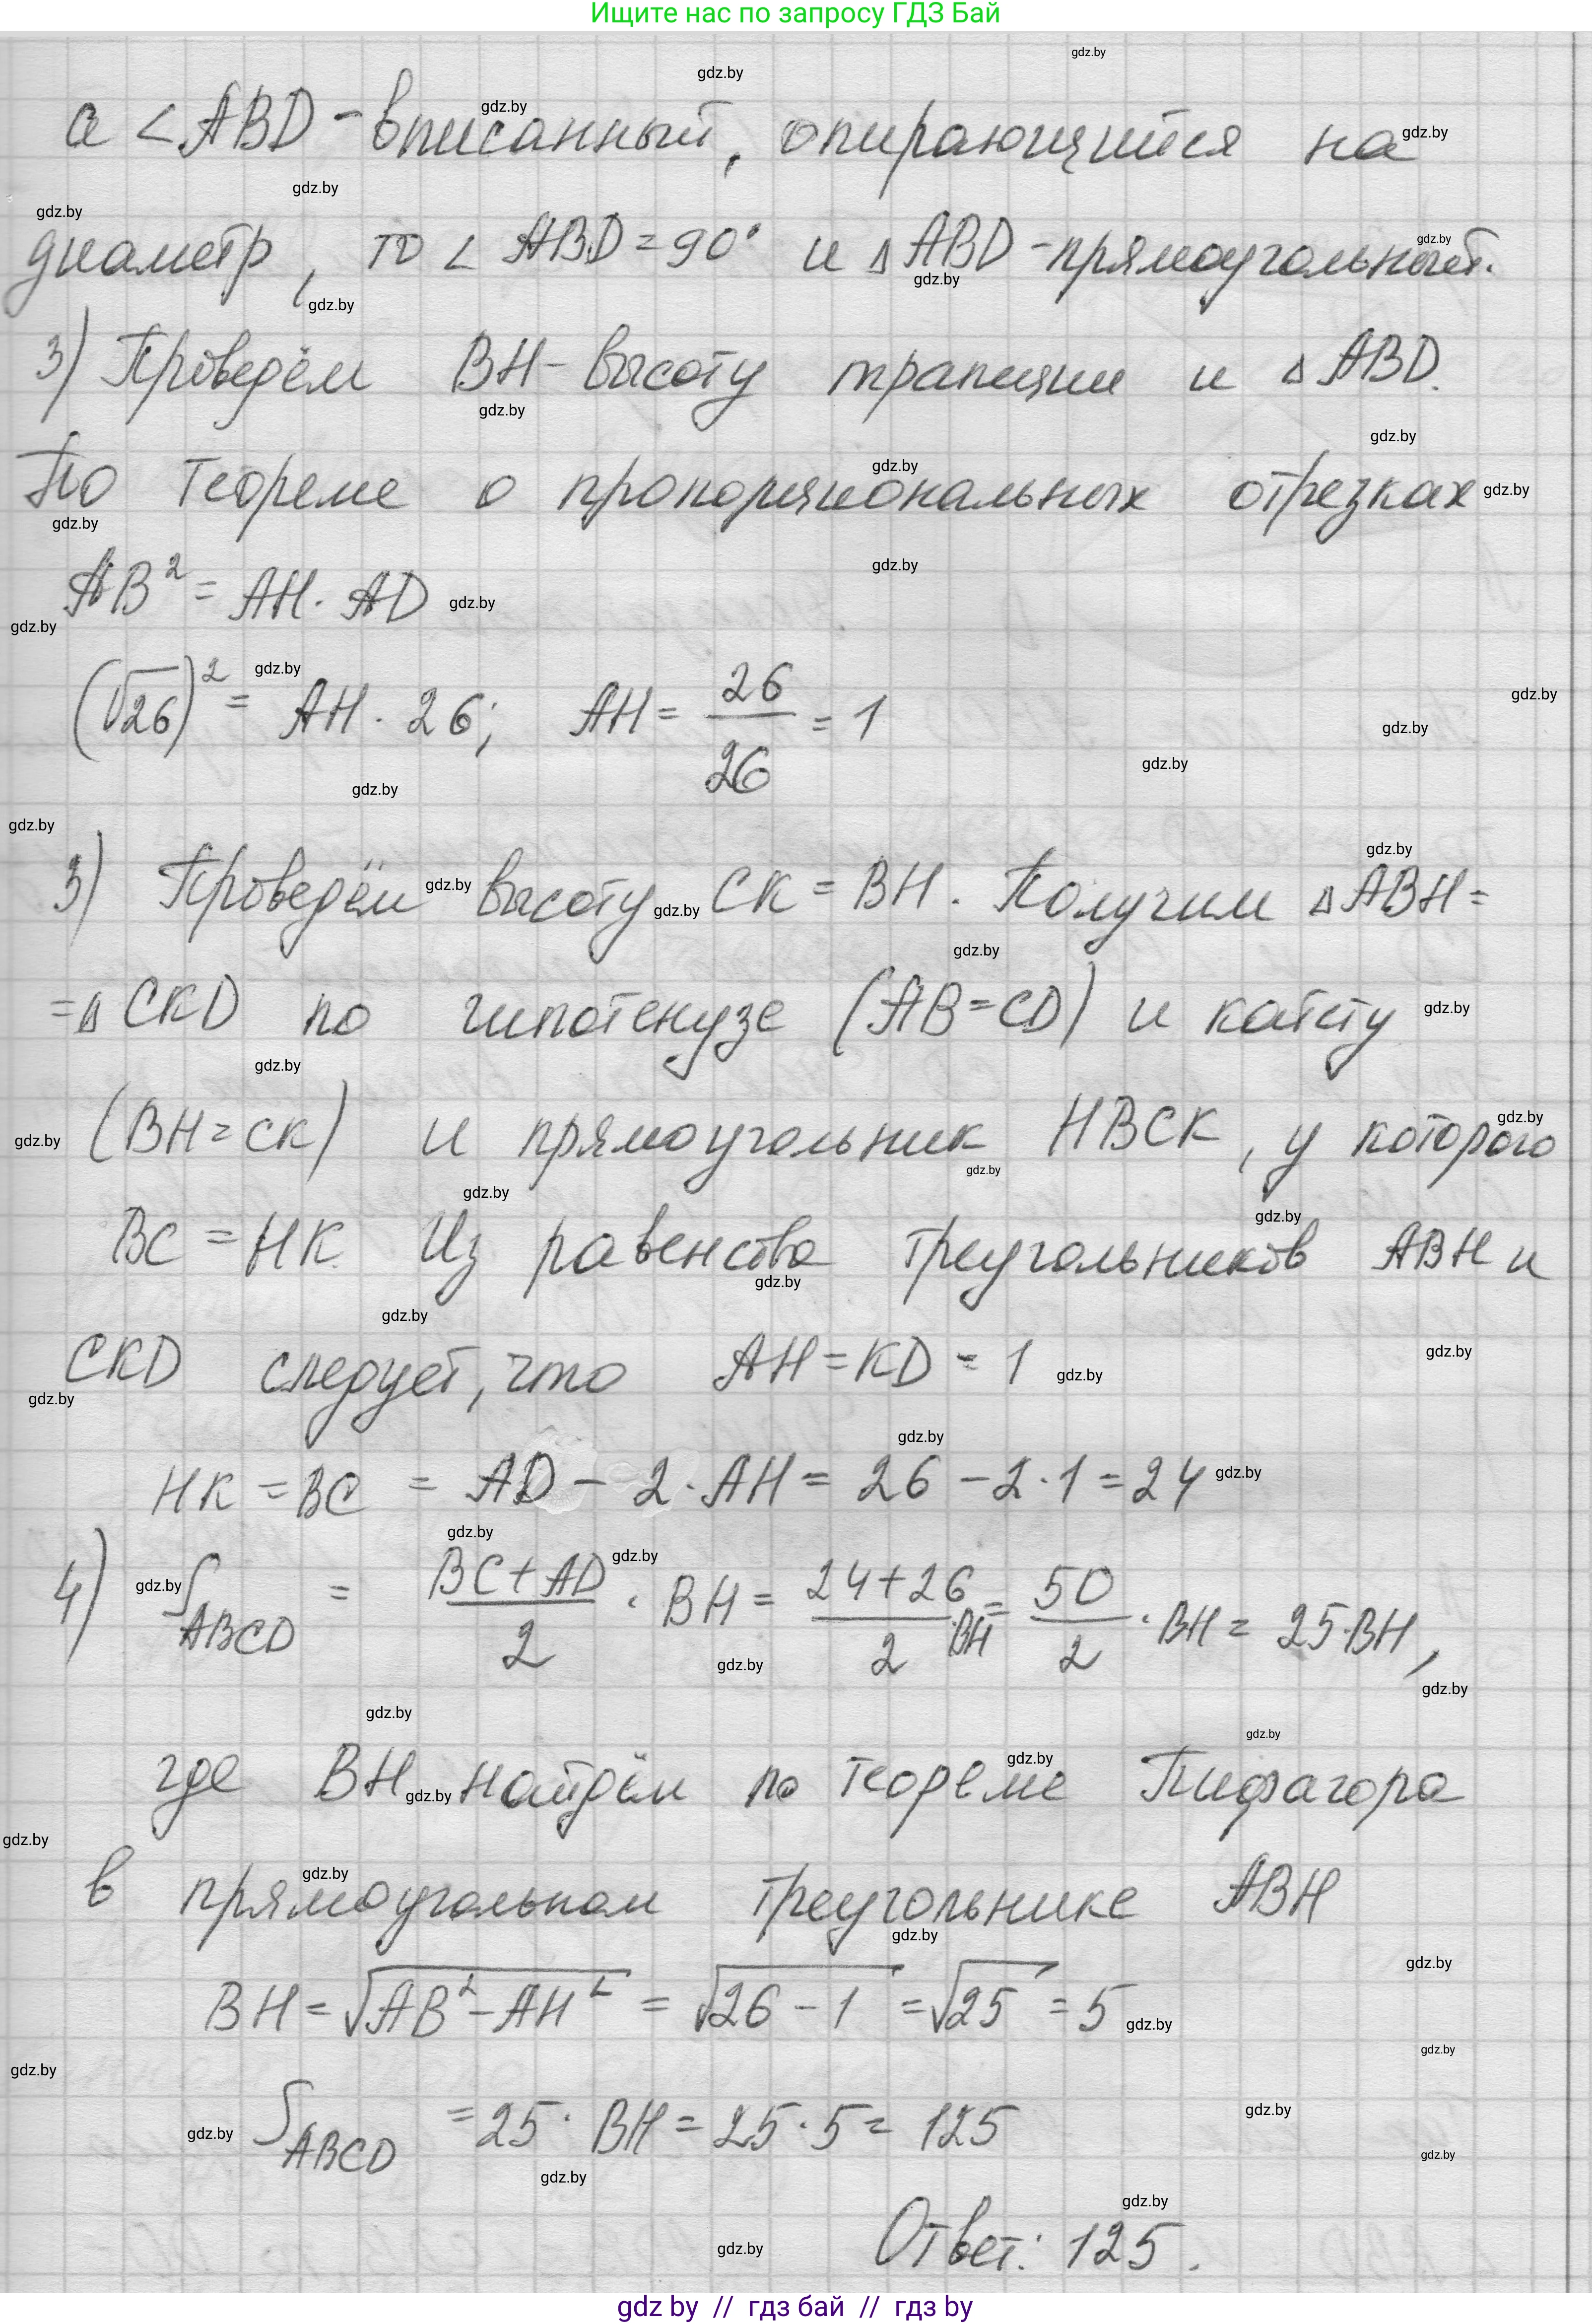 Ищите нас по запросу ГДЗ Бай
а ∠ABD - вписанный, опирающийся на
диаметр, то ∠ABD = 90° и △ABD - прямоугольный.
3) Проведём BH - высоту трапеции и △ABD.
По теореме о пропорциональных отрезках
AB² = AH · AD
(√26)² = AH · 26; AH = 26/26 = 1
3) Проведём высоту CK = BH. Получим △ABH =
= △CKD по гипотенузе (AB = CD) и катету
(BH = CK) и прямоугольник HBCK, у которого
BC = HK. Из равенства треугольников ABH и
CKD следует, что AH = KD = 1
HK = BC = AD - 2 · AH = 26 - 2 · 1 = 24
4) S_ABCD = (BC + AD)/2 · BH = (24 + 26)/2 · BH = 50/2 · BH = 25 · BH,
где BH найдём по теореме Пифагора
в прямоугольном треугольнике ABH
BH = √(AB² - AH²) = √(26 - 1) = √25 = 5
S_ABCD = 25 · BH = 25 · 5 = 125
Ответ: 125.
gdz by // гдз бай // гдз by